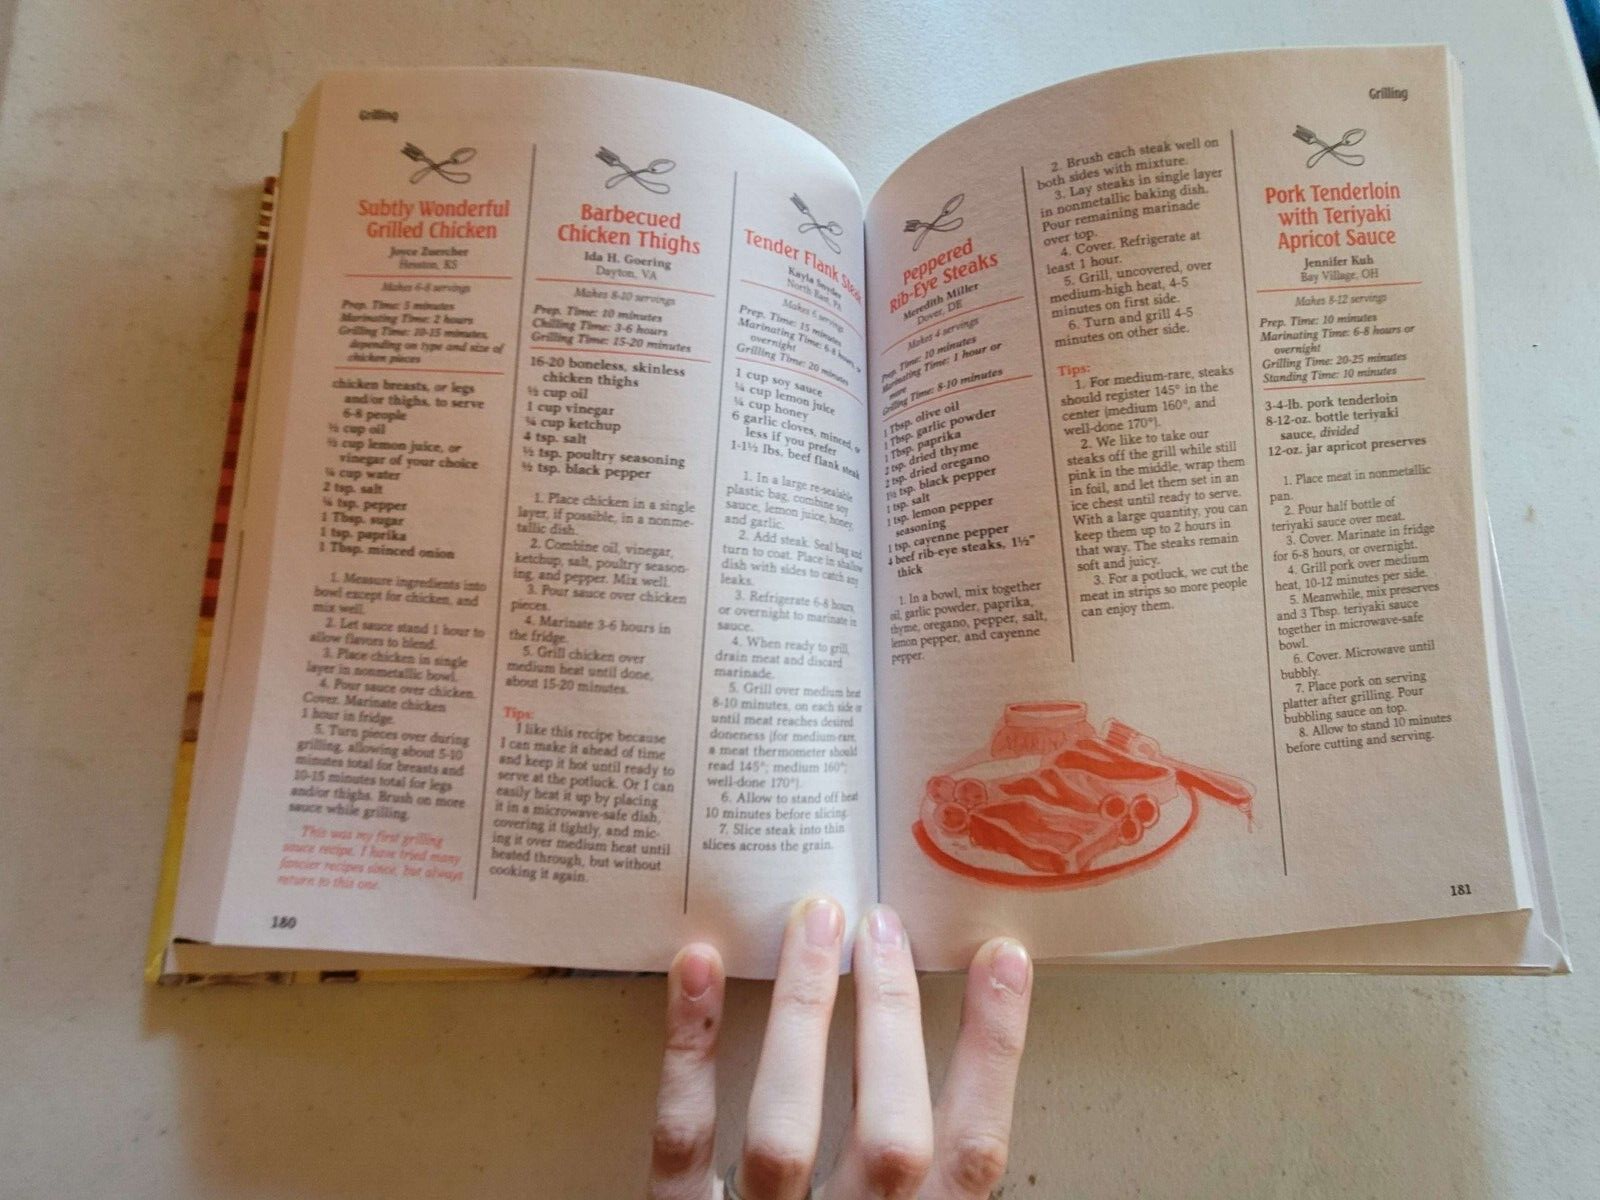 Grilling
Subtly Wonderful
Grilled Chicken
Joyce Zuercher
Hesston, KS
Makes 6-8 servings
Prep. Time: 5 minutes
Marinating Time: 2 hours
Grilling Time: 10-15 minutes,
depending on type and size of
chicken pieces
chicken breasts, or legs
and/or thighs, to serve
6-8 people
½ cup oil
½ cup lemon juice, or
vinegar of your choice
¼ cup water
2 tsp. salt
¼ tsp. pepper
1 Tbsp. sugar
1 tsp. paprika
1 Tbsp. minced onion
1. Measure ingredients into
bowl except for chicken, and
mix well.
2. Let sauce stand 1 hour to
allow flavors to blend.
3. Place chicken in single
layer in nonmetallic bowl.
4. Pour sauce over chicken.
Cover. Marinate chicken
1 hour in fridge.
5. Turn pieces over during
grilling, allowing about 5-10
minutes total for breasts and
10-15 minutes total for legs
and/or thighs. Brush on more
sauce while grilling.
This was my first grilling
sauce recipe. I have tried many
fancier recipes since, but always
return to this one.
180
Barbecued
Chicken Thighs
Ida H. Goering
Dayton, VA
Makes 8-10 servings
Prep. Time: 10 minutes
Chilling Time: 3-6 hours
Grilling Time: 15-20 minutes
16-20 boneless, skinless
chicken thighs
½ cup oil
1 cup vinegar
¼ cup ketchup
4 tsp. salt
½ tsp. poultry seasoning
½ tsp. black pepper
1. Place chicken in a single
layer, if possible, in a nonme-
tallic dish.
2. Combine oil, vinegar,
ketchup, salt, poultry season-
ing, and pepper. Mix well.
3. Pour sauce over chicken
pieces.
4. Marinate 3-6 hours in
the fridge.
5. Grill chicken over
medium heat until done,
about 15-20 minutes.
Tips:
I like this recipe because
I can make it ahead of time
and keep it hot until ready to
serve at the potluck. Or I can
easily heat it up by placing
it in a microwave-safe dish,
covering it tightly, and mic-
ing it over medium heat until
heated through, but without
cooking it again.
Tender Flank Steak
Kayla Snyder
North East, PA
Makes 6 servings
Prep. Time: 15 minutes
Marinating Time: 6-8 hours, or
overnight
Grilling Time: 20 minutes
1 cup soy sauce
¼ cup lemon juice
¼ cup honey
6 garlic cloves, minced, or
less if you prefer
1-1½ lbs. beef flank steak
1. In a large re-sealable
plastic bag, combine soy
sauce, lemon juice, honey,
and garlic.
2. Add steak. Seal bag and
turn to coat. Place in shallow
dish with sides to catch any
leaks.
3. Refrigerate 6-8 hours,
or overnight to marinate in
sauce.
4. When ready to grill,
drain meat and discard
marinade.
5. Grill over medium heat
8-10 minutes, on each side or
until meat reaches desired
doneness (for medium-rare,
a meat thermometer should
read 145°; medium 160°;
well-done 170°).
6. Allow to stand off heat
10 minutes before slicing.
7. Slice steak into thin
slices across the grain.
Grilling
Peppered
Rib-Eye Steaks
Meredith Miller
Dover, DE
Makes 4 servings
Prep. Time: 10 minutes
Marinating Time: 1 hour or
more
Grilling Time: 8-10 minutes
1 Tbsp. olive oil
1 Tbsp. garlic powder
1 Tbsp. paprika
2 tsp. dried thyme
2 tsp. dried oregano
1½ tsp. black pepper
1 tsp. salt
1 tsp. lemon pepper
seasoning
1 tsp. cayenne pepper
4 beef rib-eye steaks, 1½"
thick
1. In a bowl, mix together
oil, garlic powder, paprika,
thyme, oregano, pepper, salt,
lemon pepper, and cayenne
pepper.
2. Brush each steak well on
both sides with mixture.
3. Lay steaks in single layer
in nonmetallic baking dish.
Pour remaining marinade
over top.
4. Cover. Refrigerate at
least 1 hour.
5. Grill, uncovered, over
medium-high heat, 4-5
minutes on first side.
6. Turn and grill 4-5
minutes on other side.
Tips:
1. For medium-rare, steaks
should register 145° in the
center (medium 160°, and
well-done 170°).
2. We like to take our
steaks off the grill while still
pink in the middle, wrap them
in foil, and let them set in an
ice chest until ready to serve.
With a large quantity, you can
keep them up to 2 hours in
that way. The steaks remain
soft and juicy.
3. For a potluck, we cut the
meat in strips so more people
can enjoy them.
Pork Tenderloin
with Teriyaki
Apricot Sauce
Jennifer Kuh
Bay Village, OH
Makes 8-12 servings
Prep. Time: 10 minutes
Marinating Time: 6-8 hours or
overnight
Grilling Time: 20-25 minutes
Standing Time: 10 minutes
3-4-lb. pork tenderloin
8-12-oz. bottle teriyaki
sauce, divided
12-oz. jar apricot preserves
1. Place meat in nonmetallic
pan.
2. Pour half bottle of
teriyaki sauce over meat.
3. Cover. Marinate in fridge
for 6-8 hours, or overnight.
4. Grill pork over medium
heat, 10-12 minutes per side.
5. Meanwhile, mix preserves
and 3 Tbsp. teriyaki sauce
together in microwave-safe
bowl.
6. Cover. Microwave until
bubbly.
7. Place pork on serving
platter after grilling. Pour
bubbling sauce on top.
8. Allow to stand 10 minutes
before cutting and serving.
181